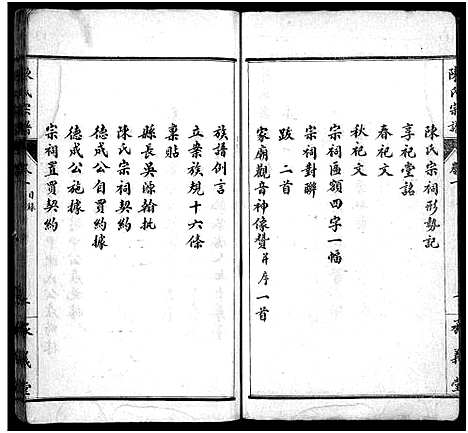 陳氏宗譜
卷一
義堂
陳氏宗祠形勢記
享祀堂銘
春祀文
秋祀文
宗祠匾額四字一幅
宗祠對聯
跋 二首
家廟觀音神像贊并序一首
族譜例言
立案族規十六條
稟貼
縣長吳源翰批
陳氏宗祠契約
德成公自買約據
德成公施據
宗祠置買契約
陳氏宗譜
卷一 目錄
義堂